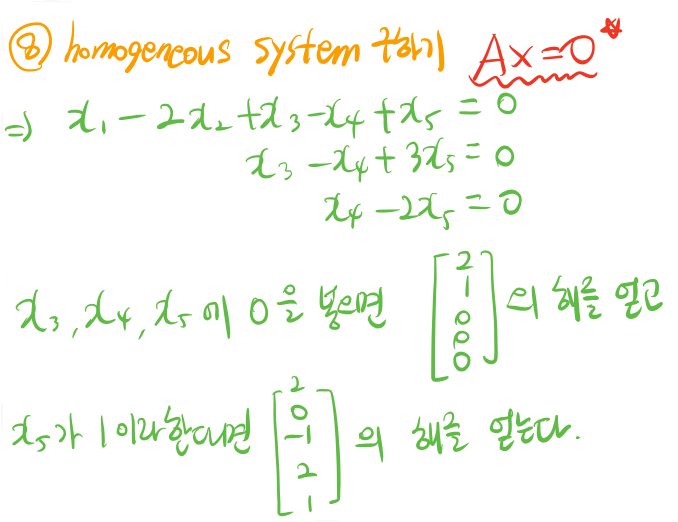 ⑧ homogeneous system 구하기 Ax=0 *
⇒ x₁ - 2x₂ + x₃ - x₄ + x₅ = 0
x₃ - x₄ + 3x₅ = 0
x₄ - 2x₅ = 0
x₃, x₄, x₅에 0을 넣으면 [2 1 0 0 0] 의 해를 얻고
x₅가 1이라한다면 [2 0 -1 2 1] 의 해를 얻는다.